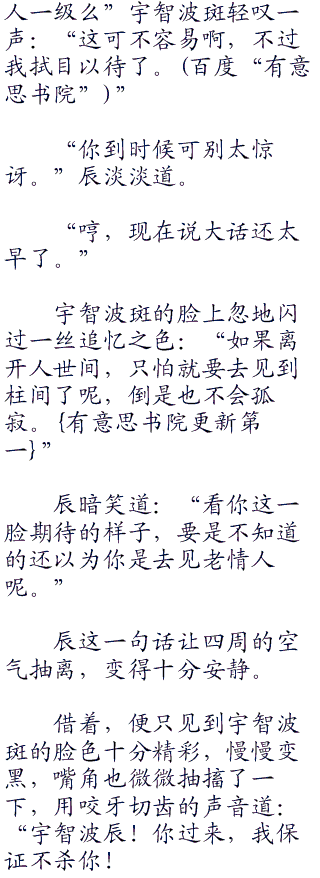 人一级么”宇智波斑轻叹一
声：“这可不容易啊，不过
我拭目以待了。(百度“有意
思书院”)”
“你到时候可别太惊
讶。”辰淡淡道。
“哼，现在说大话还太
早了。”
宇智波斑的脸上忽地闪
过一丝追忆之色：“如果离
开人世间，只怕就要去见到
柱间了呢，倒是也不会孤
寂。{有意思书院更新第
一}”
辰暗笑道：“看你这一
脸期待的样子，要是不知道
的还以为你是去见老情人
呢。”
辰这一句话让四周的空
气抽离，变得十分安静。
借着，便只见到宇智波
斑的脸色十分精彩，慢慢变
黑，嘴角也微微抽搐了一
下，用咬牙切齿的声音道：
“宇智波辰！你过来，我保
证不杀你！